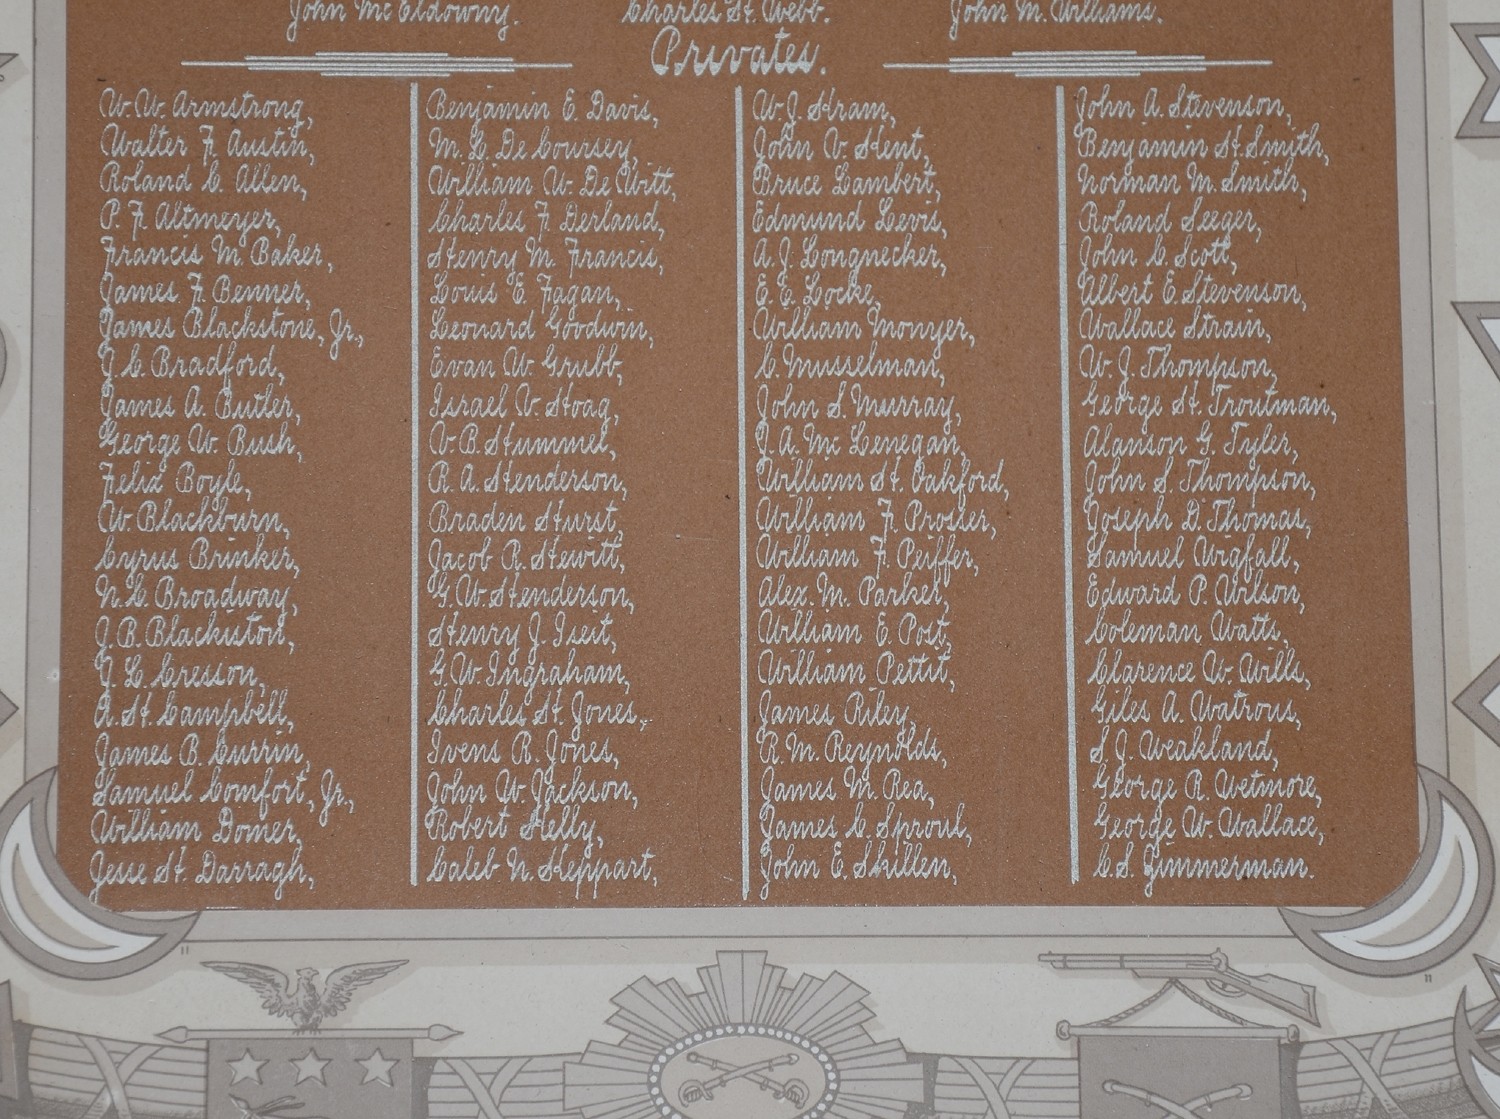 John McEldowny.
Charles H. Webb.
John M. Williams.
Privates.
W. W. Armstrong,
Walter F. Austin,
Roland C. Allen,
P. F. Altmeyer,
Francis M. Baker,
James F. Benner,
James Blackstone, Jr.,
J. C. Bradford,
James A. Butler,
George W. Bush,
Felix Boyle,
W Blackburn,
Cyrus Brinker,
N. L. Broadway,
J. B. Blackiston,
J. L. Cresson,
A. H. Campbell,
James B. Currin,
Samuel Comfort, Jr.,
William Domer,
Jesse H. Darragh,
Benjamin E. Davis,
M. L. De Coursey,
William W. De Witt,
Charles F. Derland,
Henry M. Francis,
Louis E. Fagan,
Leonard Goodwin,
Evan W. Grubb,
Israel V. Hoag,
V. B. Hummel,
R. A. Henderson,
Braden Hurst,
Jacob R. Hewitt,
G. W. Henderson,
Henry J. Iseit,
G. W. Ingraham,
Charles H. Jones,
Ivens R. Jones,
John W. Jackson,
Robert Kelly,
Caleb N. Keppart,
W. J. Kram,
John V. Kent,
Bruce Lambert,
Edmund Levis,
A. J. Longnecker,
E. E. Locke,
William Monyer,
C. Musselman,
John S. Murray,
J. A. McLenegan,
William H. Oakford,
William F. Prosser,
William F. Peiffer,
Alex. M. Parker,
William E. Post,
William Pettit,
James Riley,
R. M. Reynolds,
James M. Rea,
James C. Sproul,
John E. Skillen,
John A. Stevenson,
Benjamin H. Smith,
Norman M. Smith,
Roland Seeger,
John C. Scott,
Albert E. Stevenson,
Wallace Strain,
W. J. Thompson,
George H. Troutman,
Alanson G. Tyler,
John S. Thompson,
Joseph D. Thomas,
Samuel Wigfall,
Edward P. Wilson,
Coleman Watts,
Clarence W. Wills,
Giles A. Watrous,
S. J. Weakland,
George R. Wetmore,
George W. Wallace,
C. S. Zimmerman.